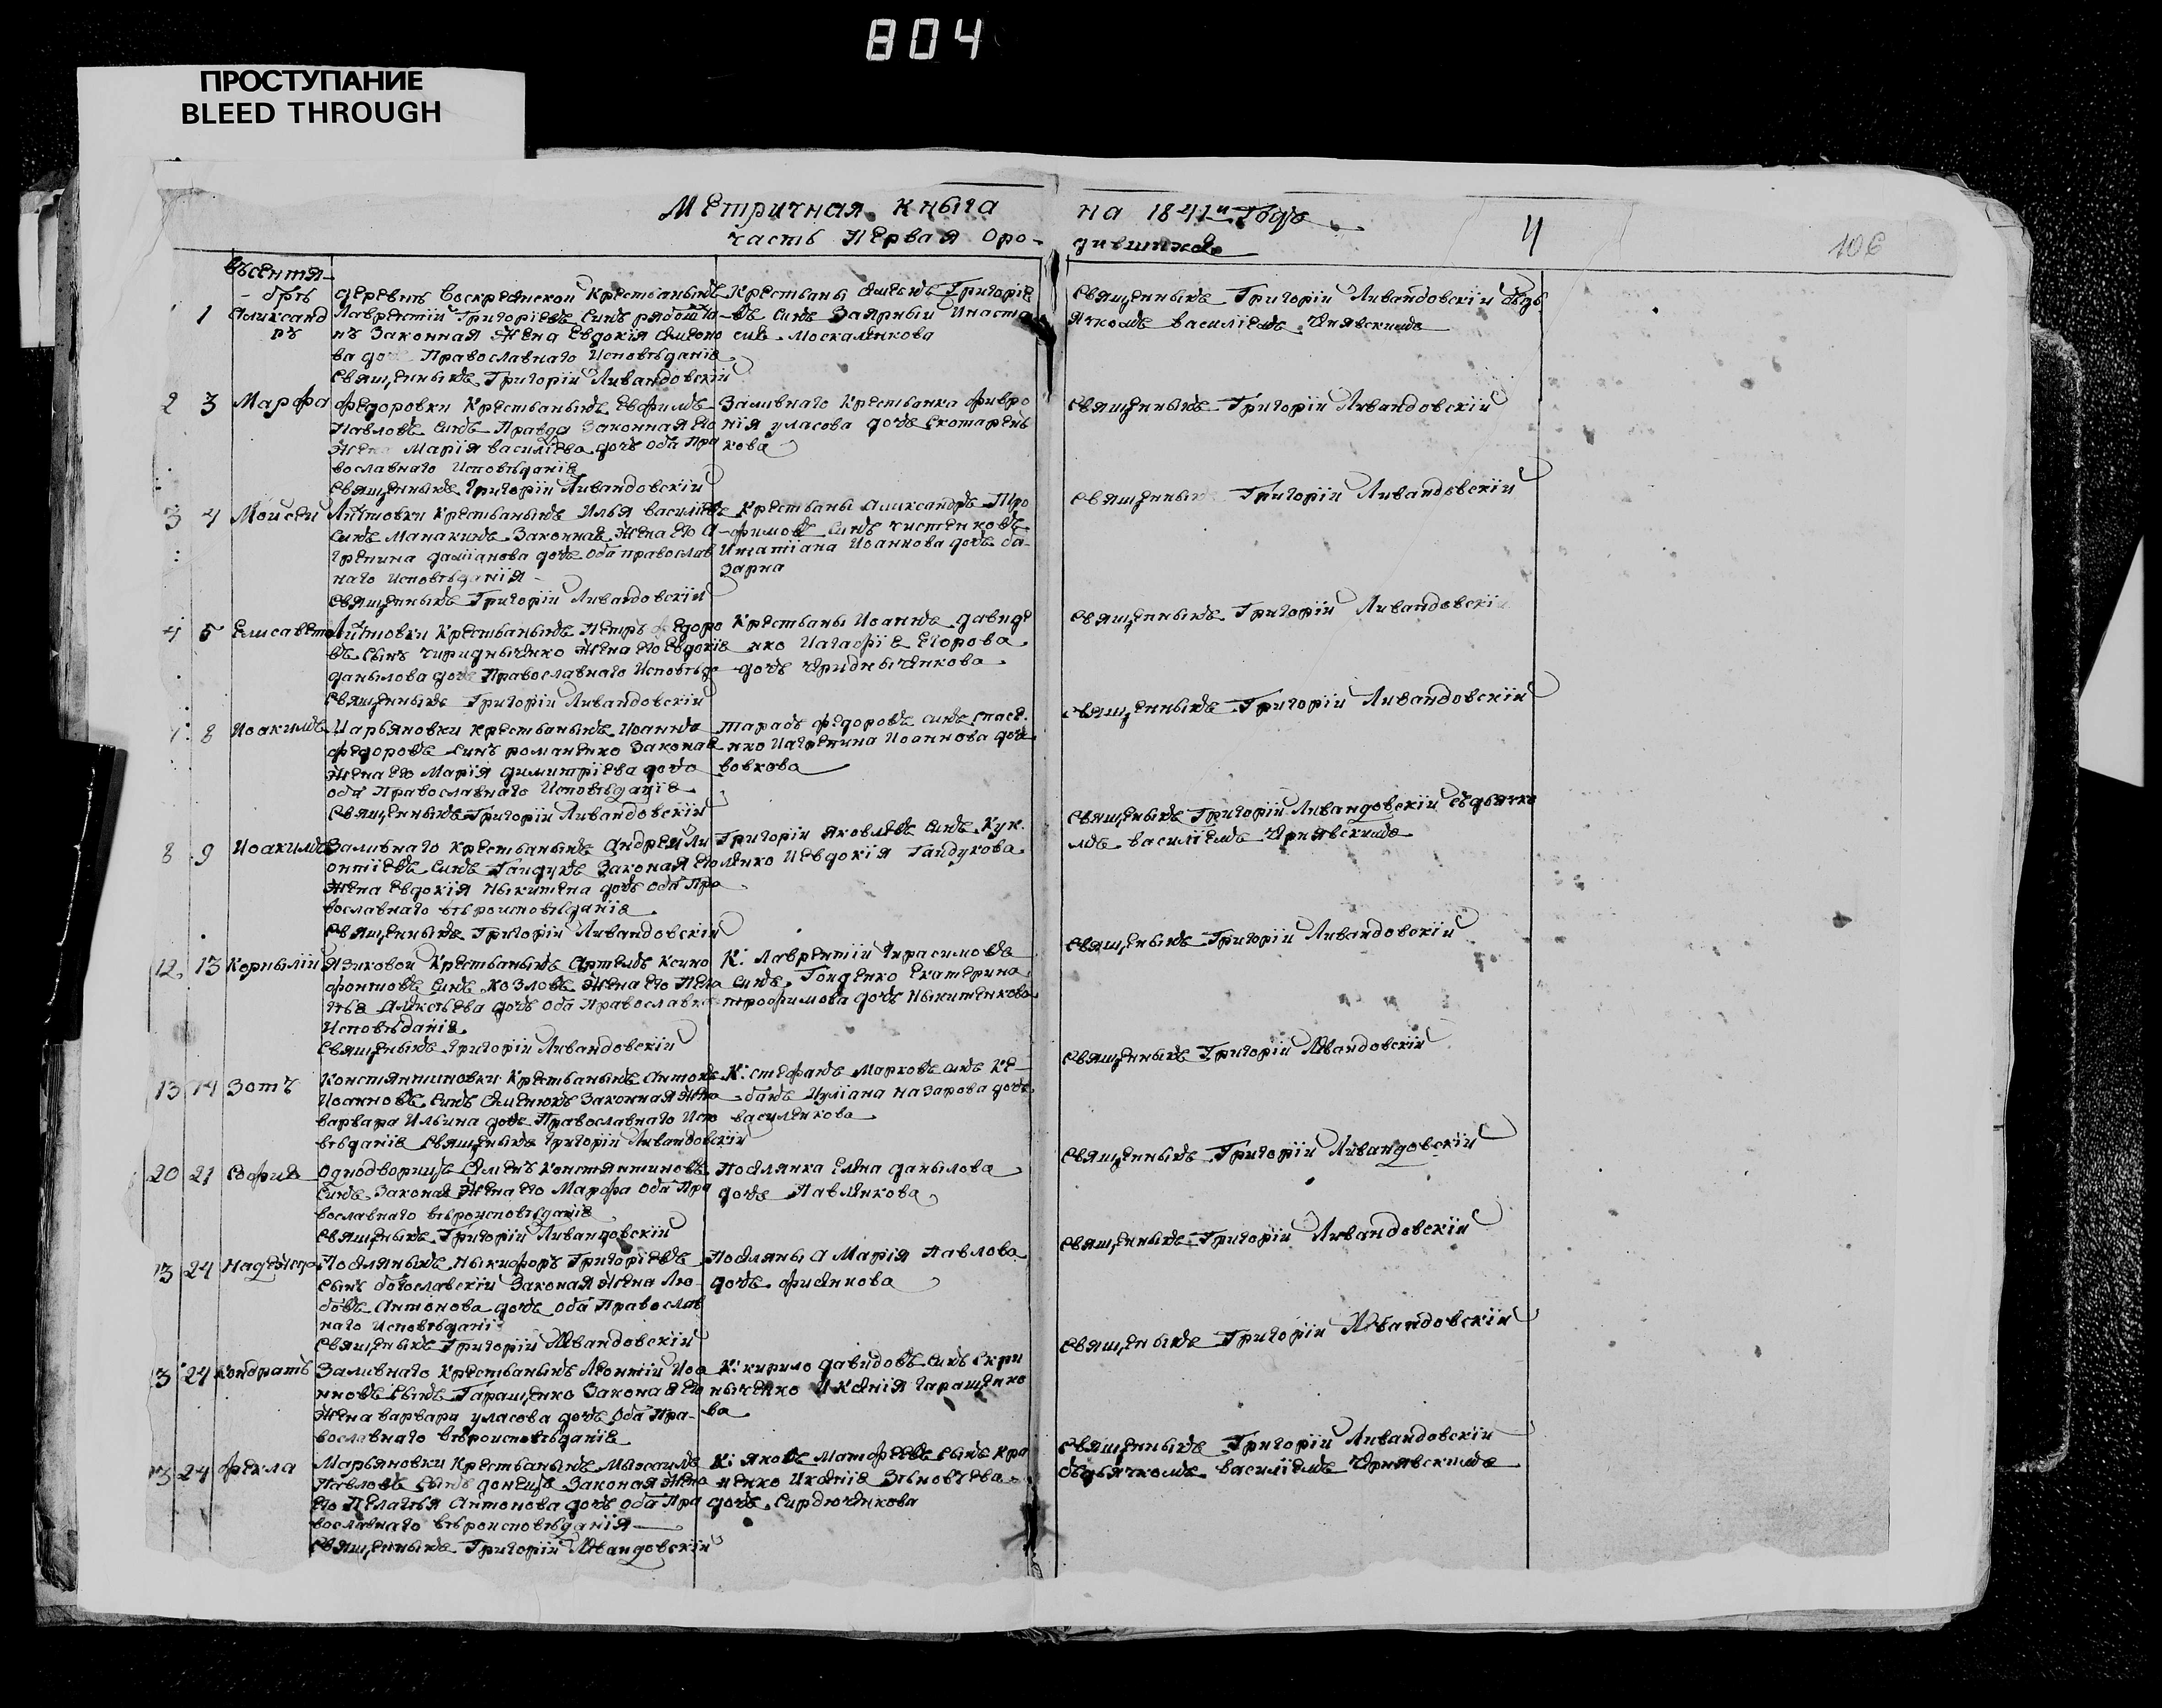 804
ПРОСТУПАНИЕ
BLEED THROUGH
Метричная кныга на 1841й Годъ
часть Первая оро-
дившихся
4
106
Въсентя-
брѣ
1 Александ
ръ
деревнѣ Воскресенской Крестьаныкъ
Лаврентій Григоріевъ Сынъ
нъ Законная Жена Евдокія Семено
ва дочь Православнаго Исповѣданія
Священныкъ Григорій Ливандовскій
Крестьаны Семенъ Григоріе
въ Сынъ Заярный Инаста
сия Москаленкова
Священныкъ Григорій Ливандовскій
ячкомъ Василіемъ Чернявскимъ
2 3 Марфа
Федоровки Крестьаныкъ Евфимъ
Павловъ Сынъ Правда Законная Его
Жена Марія Василіева дочь Оба Пра
вославнаго Исповѣданія
Священныкъ Григорій Ливандовскій
Заливнаго Крестьанка Февро
нія уласова дочь Скотарень
кова
Священныкъ Григорій Ливандовскій
3 4 Мойсей
Лѣтовки Крестьаныкъ Илья Василіевъ
Сынъ Манакинъ Законная Жена Его А
грепина даміанова дочь Оба православ
наго Исповѣданія
Священныкъ Григорій Ливандовскій
Крестьаны Александръ Тро
фимовъ Сынъ Чистенковъ
Итатіана Иоаннова дочь ба-
зарна
Священныкъ Григорій Ливандовскій
4 5 Елисавета
Лѣтовки Крестьаныкъ Петръ Федоро
въ Сынъ Чириднычено Жена Его Евдокія
данылова дочь Православнаго Исповѣда
Священныкъ Григорій Ливандовскій
Крестьаны Иоаннъ давиде
нко Иагафіе Егорова
дочь Чередныченкова
Священныкъ Григорій Ливандовскій
8 Иоакимъ
Марьяновки Крестьаныкъ Иоаннъ
Федоровъ Сынъ романенко Законая
Жена Его Марія димитріева дочь
оба Православнаго Исповѣданія
Священныкъ Григорій Ливандовскій
тарасъ Федоровъ Сынъ спасе
нко Иагрепина Иоаннова дочь
вовкова
Священныкъ Григорій Ливандовскій
8 9 Иоакимъ
Заливнаго Крестьаныкъ Андрей Ли
онтіевъ Сынъ Гандукъ Законая Его
Жена Евдокія Ныкитена дочь Оба Пра
вославнаго вѣроисповѣданія
Священныкъ Григорій Ливандовскій
Григорій Яковлевъ Сынъ Кук
ленко Иевдокія Гандукова
Священныкъ Григорій Ливандовскій Съдьячко
мъ Василіемъ Чернявскимъ
12 13 Корнылій
Язиковой Крестьаныкъ Артемъ Ксено
фонтовъ Сынъ Козловъ Жена Его Пела
гѣя Алексѣева дочь Оба Православна
Исповѣданія
Священыкъ Григорій Ливандовскій
К: Лаврентій Герасимовъ
Сынъ Гонденко Екатерина
трофимова дочь Ныкитенкова
Священныкъ Григорій Ливандовскій
13 14 Зотъ
Константиновки Крестьаныкъ Антонъ
Иоанновъ Сынъ Семенюкъ Законная Жена
варвара Ильина дочь Православнаго Испо
вѣданія Священыкъ Григорій Ливандовскій
К: Стефанъ Марковъ Сынъ Ке-
банъ Иуліана Назарова дочь
василенкова
Священныкъ Григорій Ливандовскій
20 21 Софія
Однодворицъ Семенъ Константиновъ
Сынъ Законая Жена Его Марфа Оба Пра
вославнаго вѣроисповѣданія
Священыкъ Григорій Ливандовскій
Поселянка Елена данылова
дочь Павленкова
Священныкъ Григорій Ливандовскій
24 Надежда
Поселяныкъ Ныкифоръ Григоріевъ
Сынъ богославскій Законая Жена Лю-
бовъ Антонова дочь Оба Православ
наго Исповѣданія
Священыкъ Григорій Ливандовскій
Поселяны А Марія Павлова
дочь Фисенкова
Священныкъ Григорій Ливандовскій
24 Кондратъ
Заливнаго Крестьаныкъ Леонтій Иоа
нновъ Сынъ Гаращенко Законая Его
Жена варвара уласова дочь Оба Пра-
вославнаго вѣроисповѣданія
К: кирило давидовъ Сынъ Скри
ныченко Иксенія Гаращенко
ва
Священыкъ Григорій Ливандовскій
24 Фекла
Марьяновки Крестьаныкъ Максимъ
Павловъ Сынъ донецъ Законая Жена
Его Пелагѣя Антонова дочь Оба Пра
вославнаго вѣроисповѣданія
Священныкъ Григорій Ливандовскій
К: Яковъ Матофеевъ Сынъ Кра
ненко Иксенія Зѣновъева
дочь Сирдюченкова
Священныкъ Григорій Ливандовскій
Съдьячкомъ Василіемъ Чернявскимъ